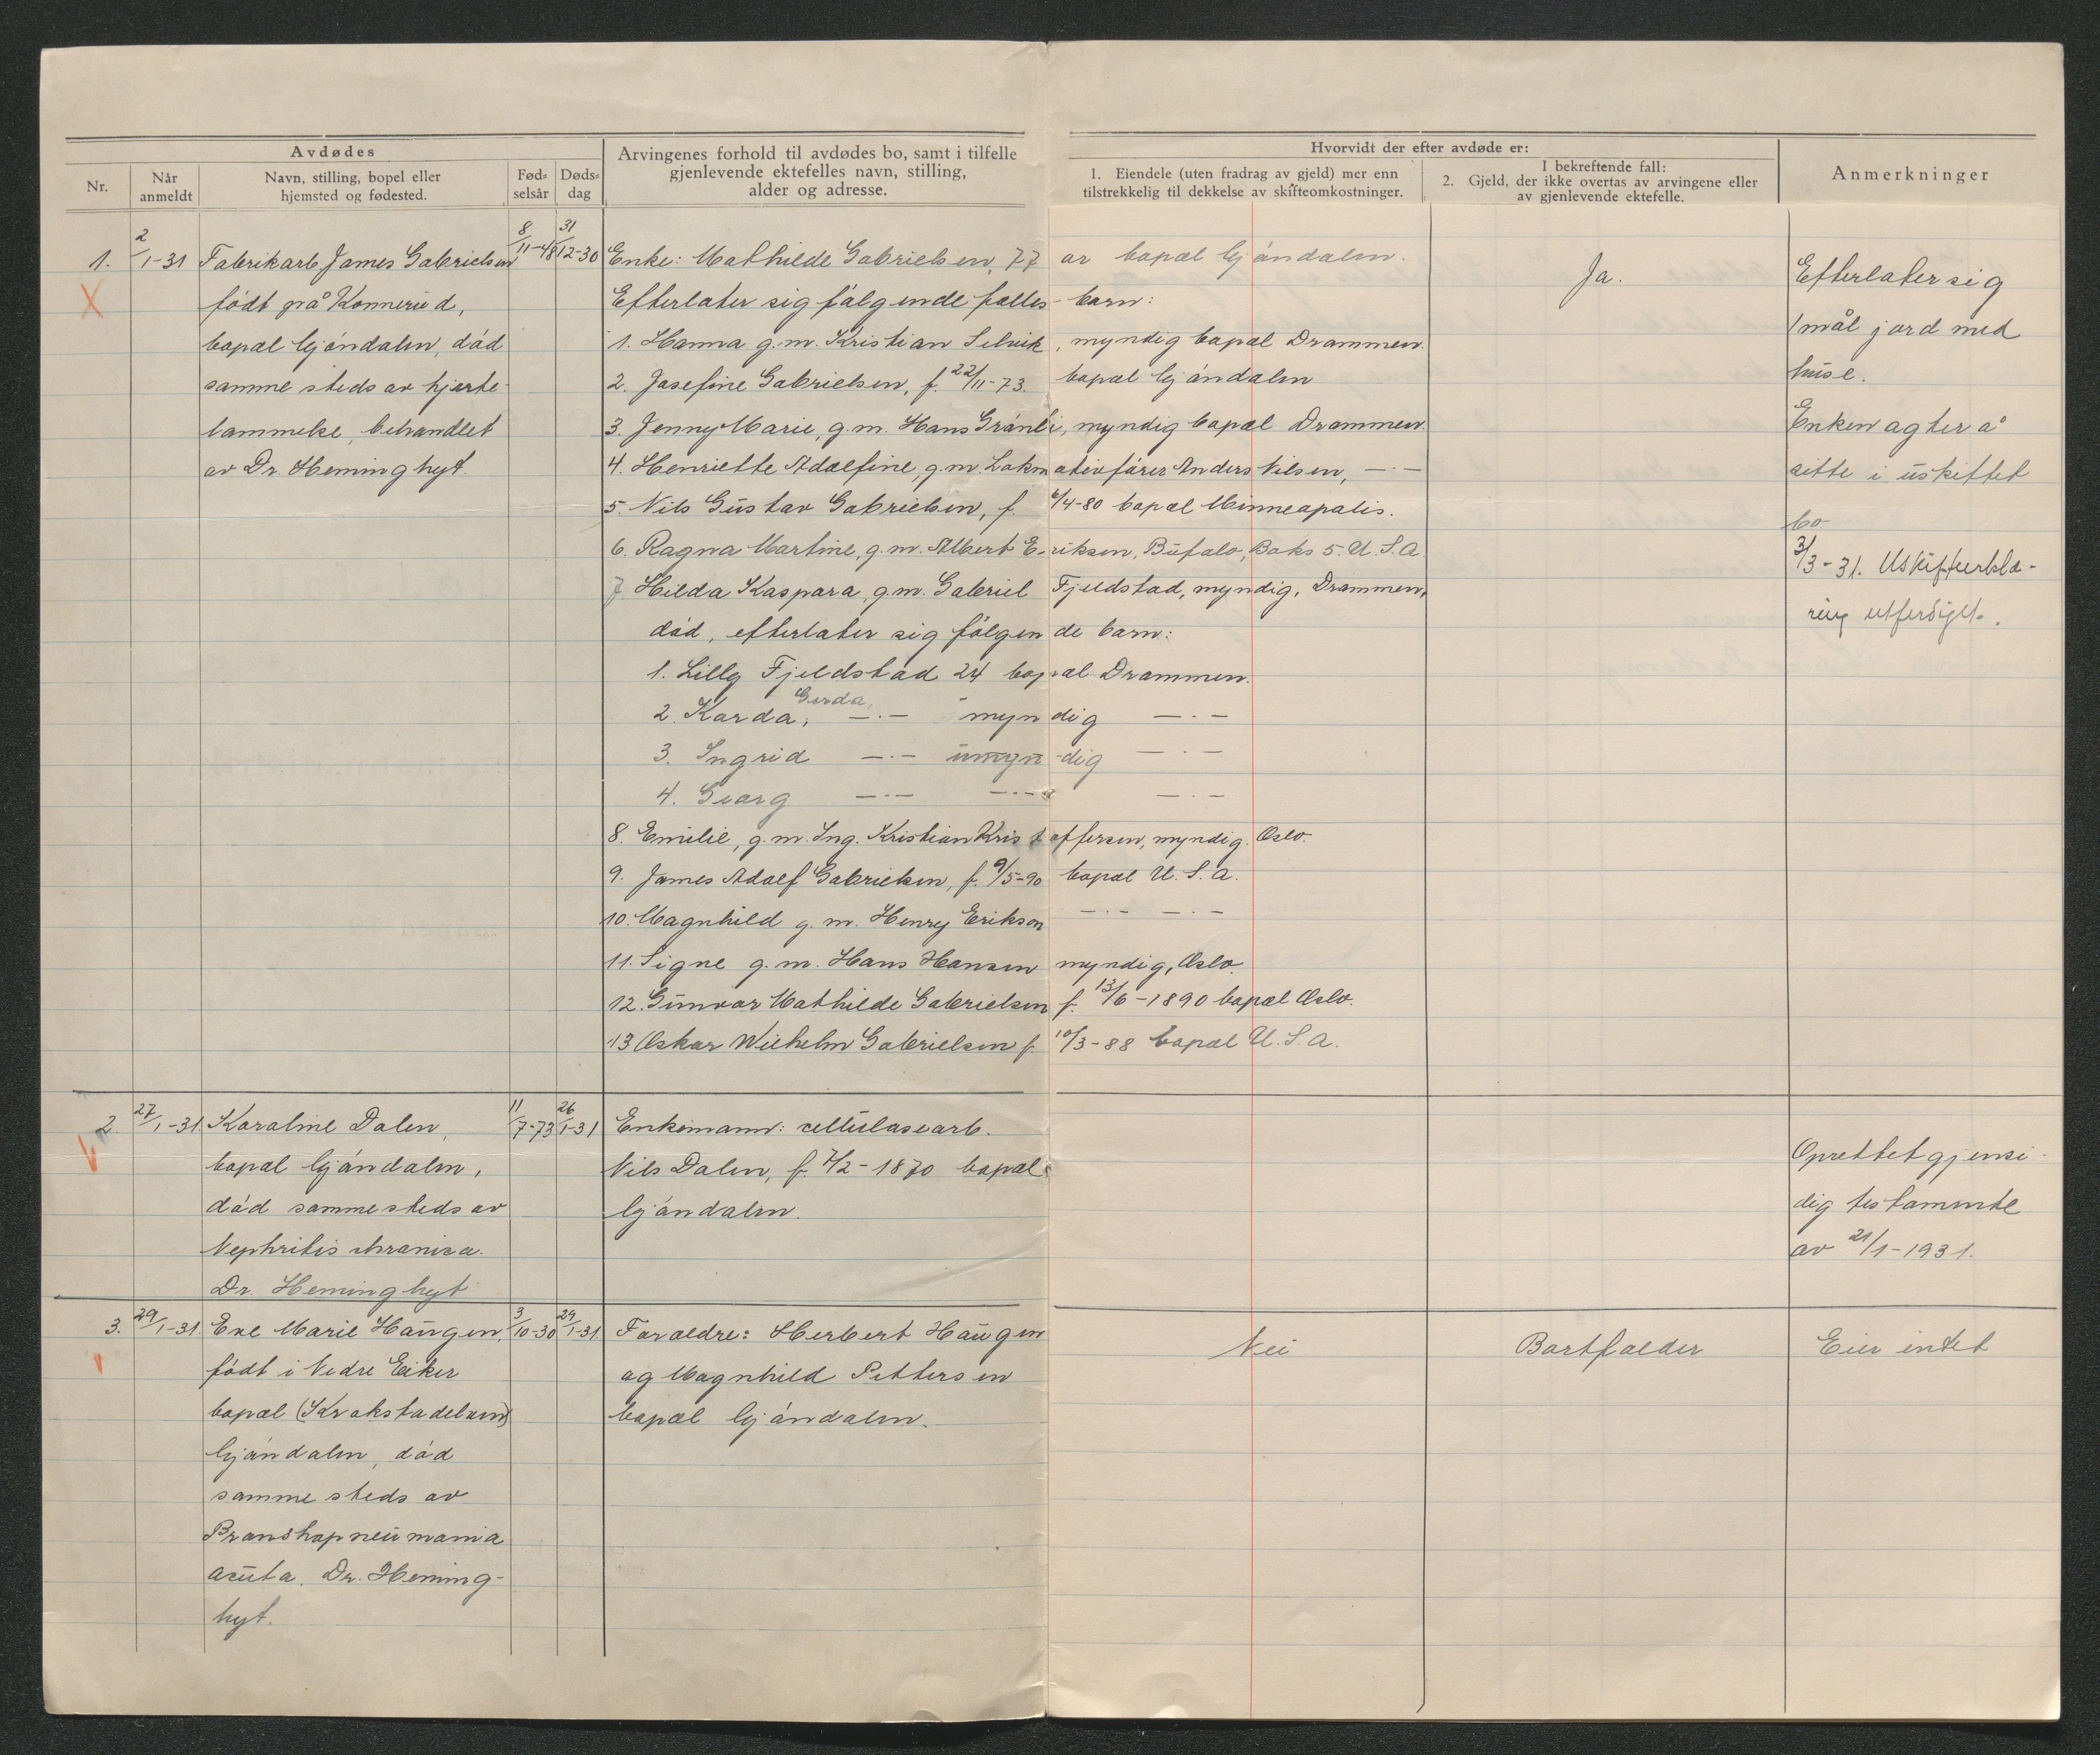 Avdødes
Arvingenes forhold til avdødes bo, samt i tilfelle
gjenlevende ektefelles navn, stilling,
alder og adresse.
Hvorvidt der efter avdøde er:
Anmerkninger
Nr.
Når
anmeldt
Navn, stilling, bopel eller
hjemsted og fødested.
Fød-
selsår
Døds-
dag
1. Eiendele (uten fradrag av gjeld) mer enn
tilstrekkelig til dekkelse av skifteomkostninger.
I bekreftende fall:
2. Gjeld, der ikke overtas av arvingene eller
av gjenlevende ektefelle.
1.
2/1-31
Fabrikarb James Gabrielsen
født på Konnerud,
bopæl Gjöndalen, död
sammesteds av hjerte-
lammelse, behandlet
av Dr. Heminghyt.
8/11-48
31/12-30
Enke: Mathilde Gabrielsen, 77 ar bopæl Gjöndalen.
Efterlater sig følgende fælles-barn:
1. Hanna g.m. Kristian Selvik, myndig bopæl Drammen.
2. Josefine Gabrielsen, f. 22/11-73. bopæl Gjöndalen
3. Jenny Marie, g.m. Hans Grönli, myndig bopæl Drammen
4. Henriette Adolfine, g.m. Lokmotivförer Anders Nilsen, —·—
5. Nils Gustav Gabrielsen, f. 6/4-80 bopæl Minneapolis.
6. Ragna Martine, g.m. Albert Eriksen, Bufalo, Boks 5. U.S.A
7 Hilda Kaspara, g.m. Gabriel Fjeldstad, myndig, Drammen,
död, efterlater sig fölgende barn:
1. Lilly Fjeldstad 24 bopæl Drammen.
Gerda,
2. Karda, —·— myndig —·—
3. Ingrid —·— umyn-dig —·—
4. Georg —·— —·— —·—
8. Emilie, g.m. Ing. Kristian Kristoffersen, myndig. Oslo.
9. James Adolf Gabrielsen, f. 9/5-90 bopæl U.S.A.
10. Magnhild g.m. Henry Erikson —·— —·—
11. Signe g.m. Hans Hansen myndig, Oslo.
12. Gunvor Mathilde Gabrielsen f. 13/6-1890 bopæl Oslo.
13 Oskar Wilhelm Gabrielsen f. 10/3-88 bopæl U.S.A.
Ja.
Efterlater sig
1 mål jord med
huse.
Enken agter å
sitte i uskiftet
bo
3/3-31. Uskifteerklæ-
ring utferdiget.
2.
27/1-31.
Karoline Dalen,
bopæl Gjöndalen,
död sammesteds av
Nephritis chronica.
Dr. Heminghyt
11/7-73
26/1-31
Enkemann: cellulosearb.
Nils Dalen, f. 7/2-1870 bopæl
Gjöndalen.
Oprettet gjensi-
dig testamente
av 21/1-1931.
3.
29/1-31
Marie Haugen,
födt i Nedre Eiker
bopæl (Krokstadelven)
Gjöndalen, död
sammesteds av
Bronshopneumonia
acuta. Dr. Heming-
hyt.
3/10-30
24/1-31.
Foreldre: Herbert Haugen
og Magnhild Pettersen
bopæl Gjöndalen.
Nei
Bortfalder
Eier intet